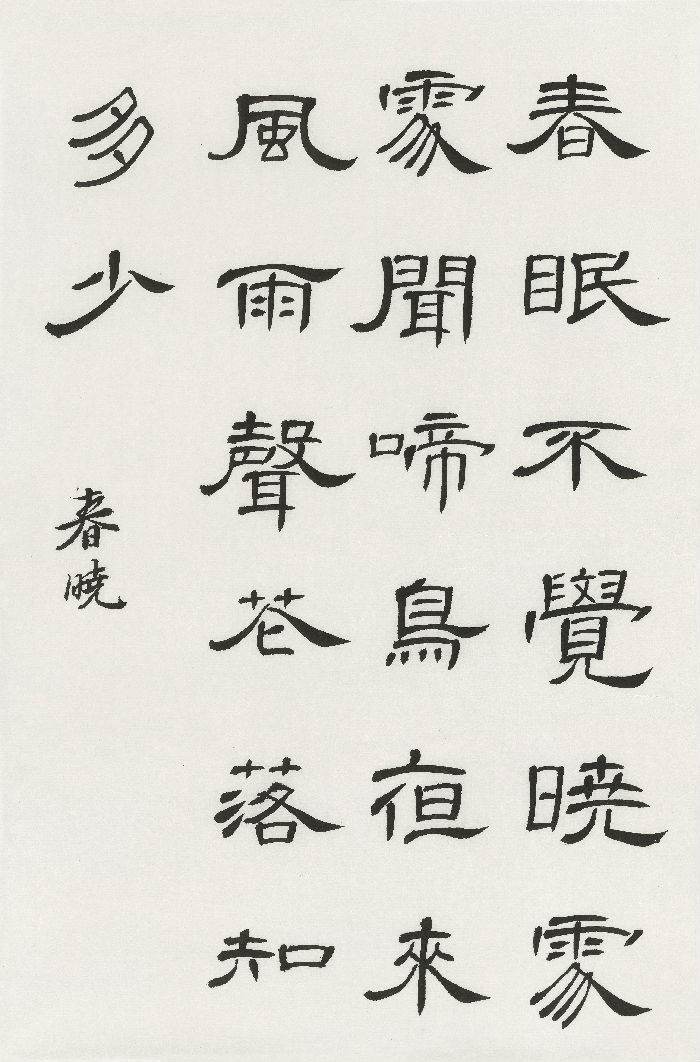 春眠不覺暁處
處聞啼鳥夜来
風雨聲花落知
多少
春暁